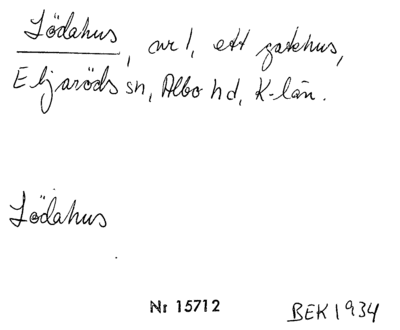 Lödahus, nr 1, ett gatehus,
Eljaröds sn, Albo hd, K-län.
Lödahus
Nr 15712
BEK 1934